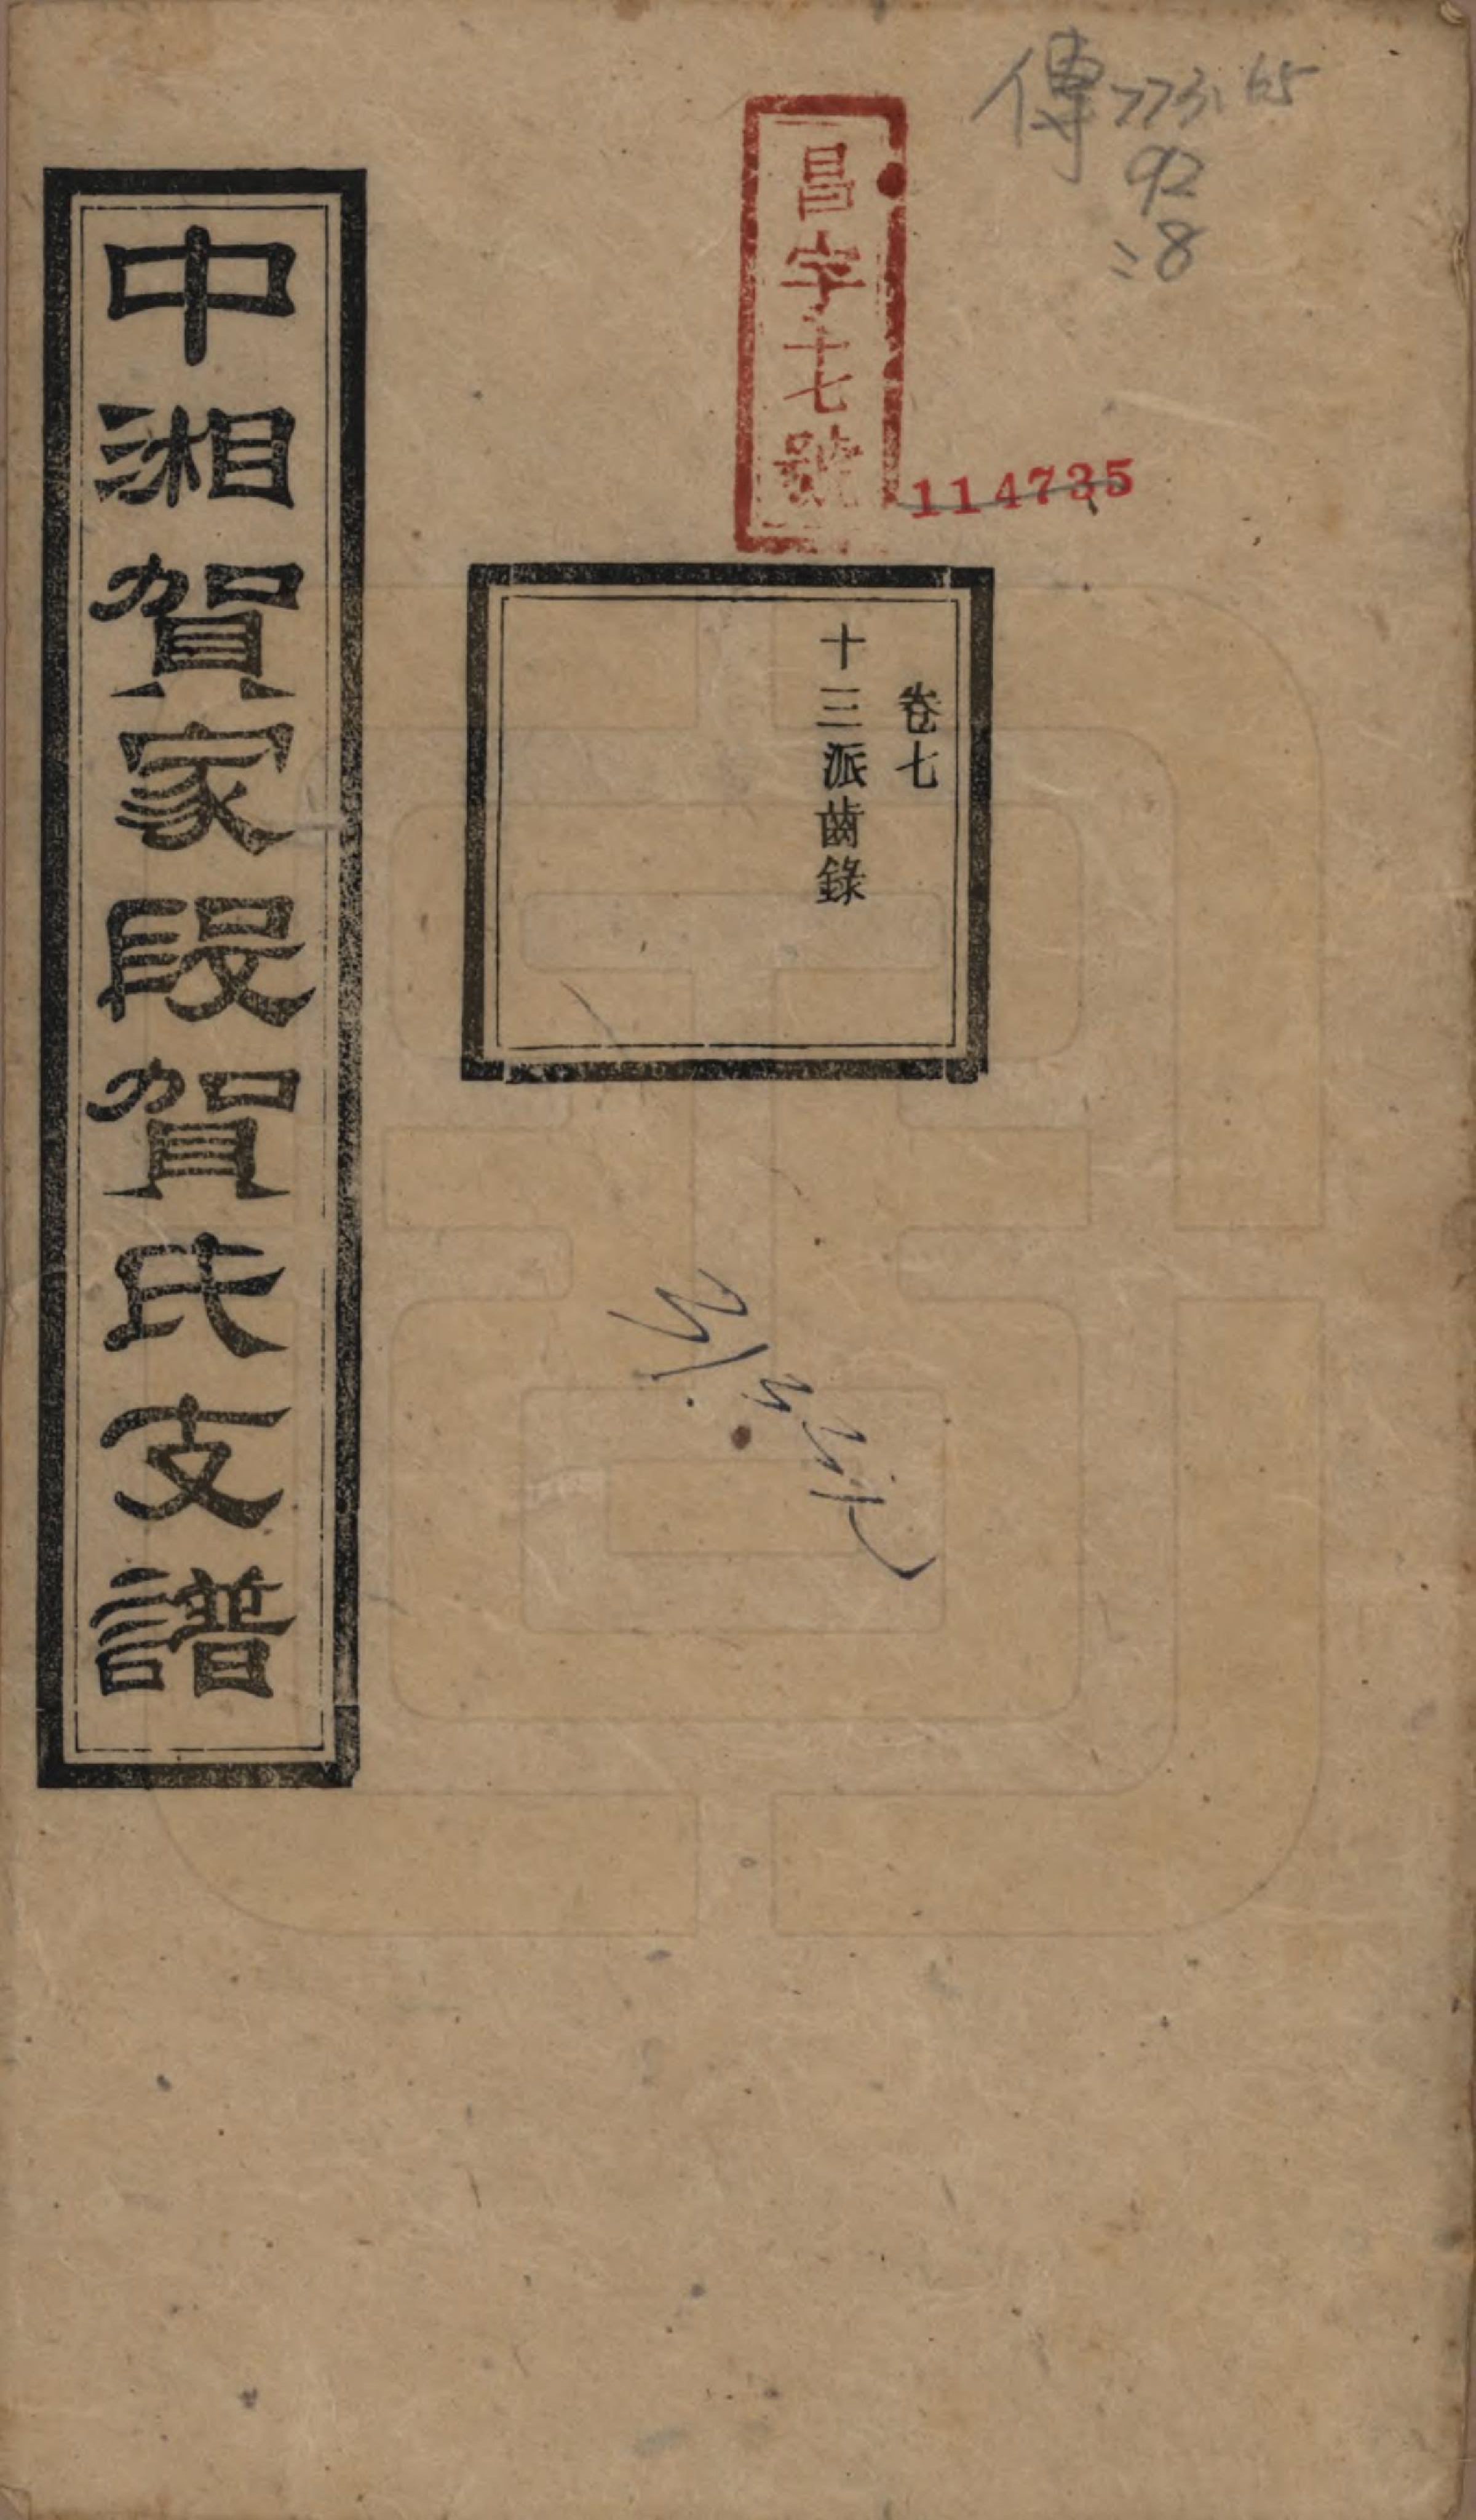 傳773.165
92
:8
昌字十七號
114735
卷七
十三派齒錄
中湘賀家段賀氏支譜